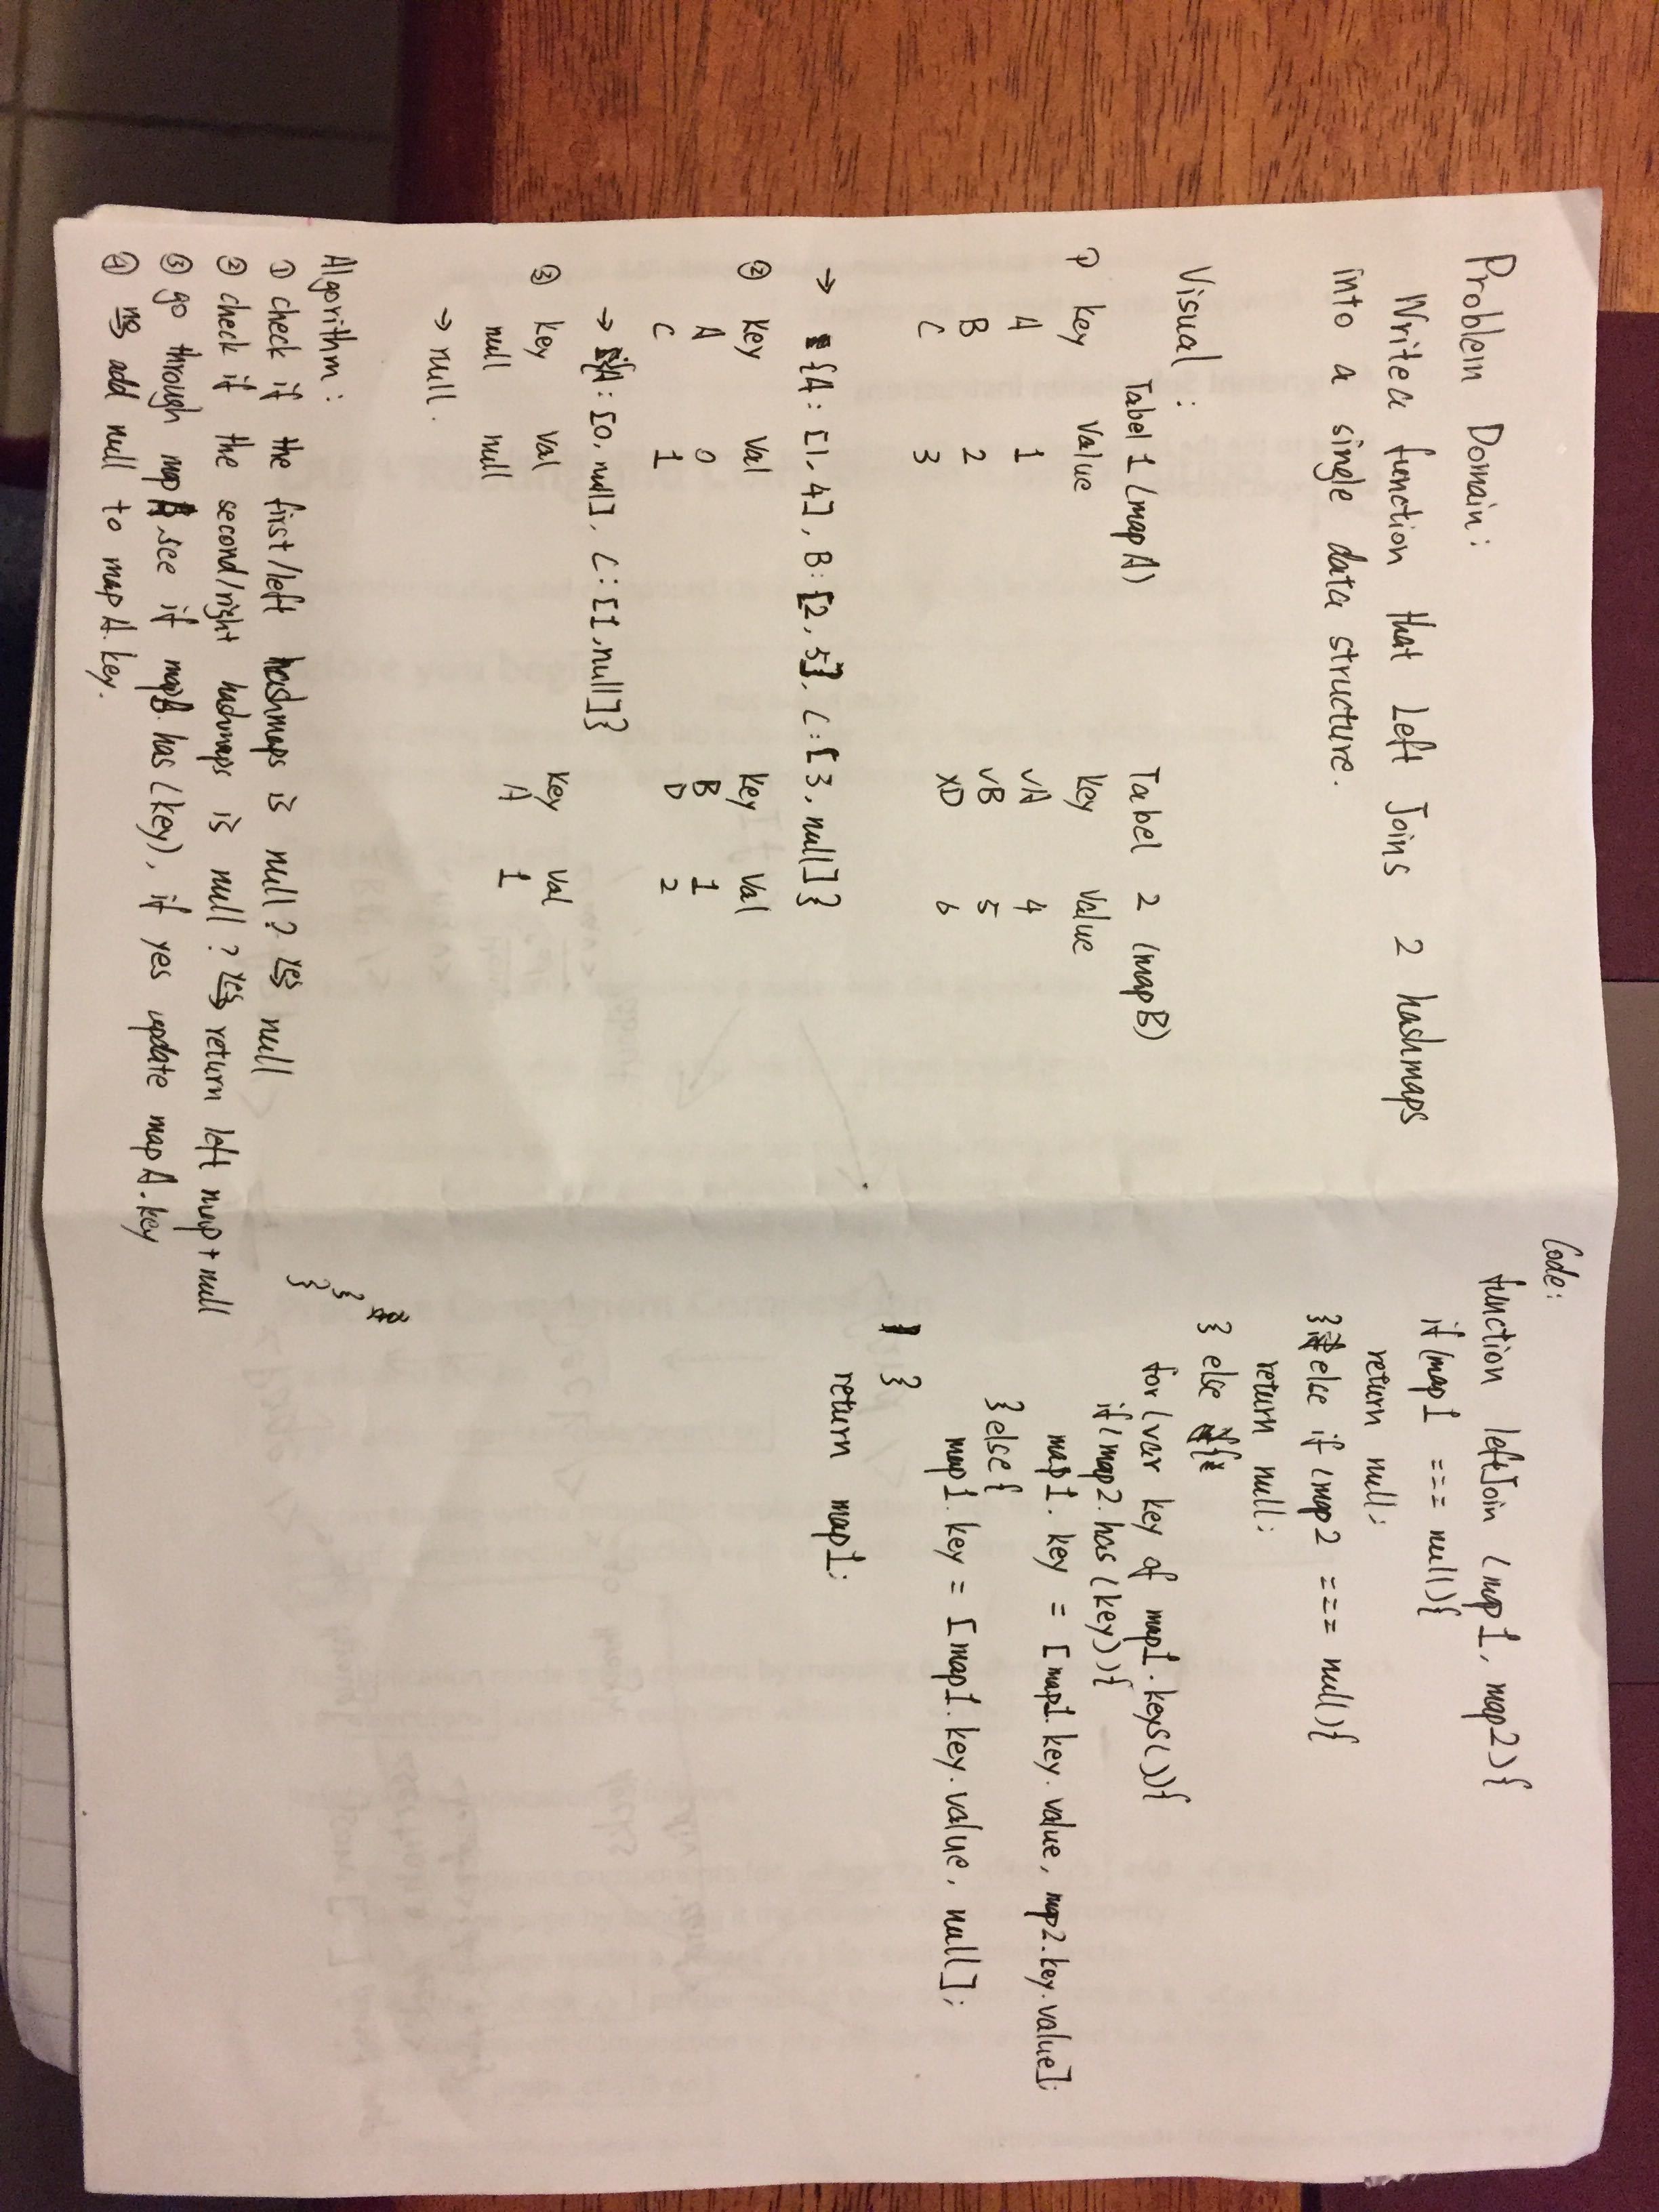 Problem Domain:
Write a function that Left Joins 2 hashmaps
into a single data structure.
Visual:
Tabel 1 (mapA) Tabel 2 (mapB)
① key value key value
A 1 ✓A 4
B 2 ✓B 5
C 3 xD 6
→ {A: [1, 4], B: [2, 5], C: [3, null]}
② key val key val
A 0 B 1
C 1 D 2
→ {A: [0, null], C: [1, null]}
③ key val key val
null null A 1
→ null.
Algorithm:
① check if the first/left hashmaps is null? yes null
② check if the second/right hashmaps is null? yes return left map + null
③ go through mapA, see if mapB.has(key), if yes update mapA.key
④ no add null to mapA.key.
Code:
function leftJoin (map1, map2){
if (map1 === null){
return null;
} else if (map2 === null){
return null;
} else {
for (var key of map1.keys()){
if (map2.has(key)){
map1.key = [map1.key.value, map2.key.value];
}else{
map1.key = [map1.key.value, null];
}
return map1;
}
}